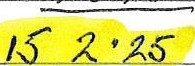 15 2.25